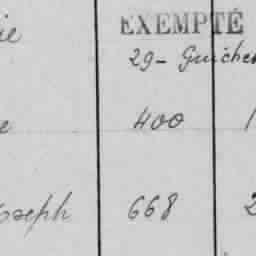 EXEMPTÉ
29 - Guichen
400
oseph 668 2